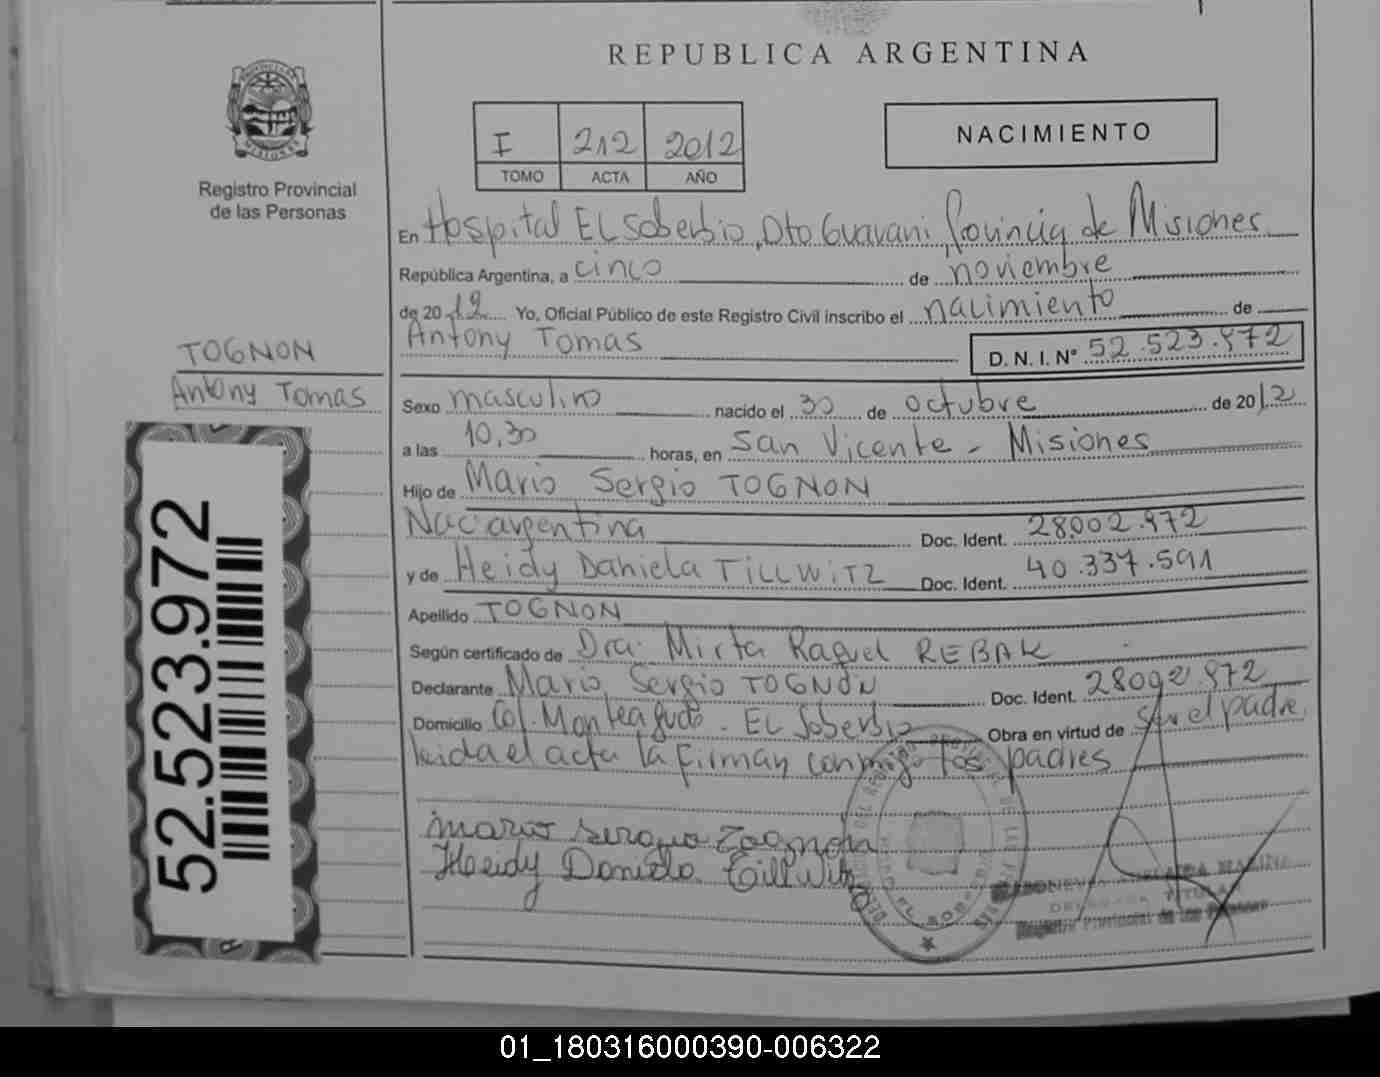 REPUBLICA ARGENTINA
I 212 2012
TOMO ACTA AÑO
NACIMIENTO
Registro Provincial
de las Personas
En Hospital EL Soberbio, Dto Guarani, Provincia de Misiones
República Argentina, a cinco de noviembre
de 2012 Yo, Oficial Público de este Registro Civil inscribo el nacimiento de
Antony Tomas D. N. I. N° 52.523.972
TOGNON
Antony Tomas
Sexo masculino nacido el 30 de octubre de 2012
a las 10,30 horas, en San Vicente - Misiones
Hijo de Mario Sergio TOGNON
Nac argentina Doc. Ident. 28.002.972
y de Heidy Daniela TILLWITZ Doc. Ident. 40.337.591
Apellido TOGNON
Según certificado de Dra. Mirta Raquel REBAK
Declarante Mario Sergio TOGNON Doc. Ident. 28002.972
Domicilio Col. Monteagudo - EL Soberbio Obra en virtud de ser el padre
leida el acta la firman conmigo los padres
Mario Sergio Tognon
Heidy Daniela Tillwitz
Registro Provincial de las Personas
52.523.972
01_180316000390-006322